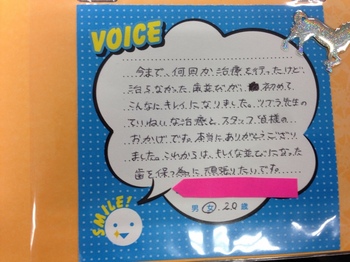 VOICE
今まで、何回か治療を行ったけど、
治らなかった歯並びが、初めて
こんなにキレイになりました。リブラ先生の
ていねいな治療と、スタッフ皆様の
おかげです。本当にありがとうござい
ました。これからは、キレイな並びになった
歯を保つ為に頑張りたいです。
SMILE!
男 女 20 歳